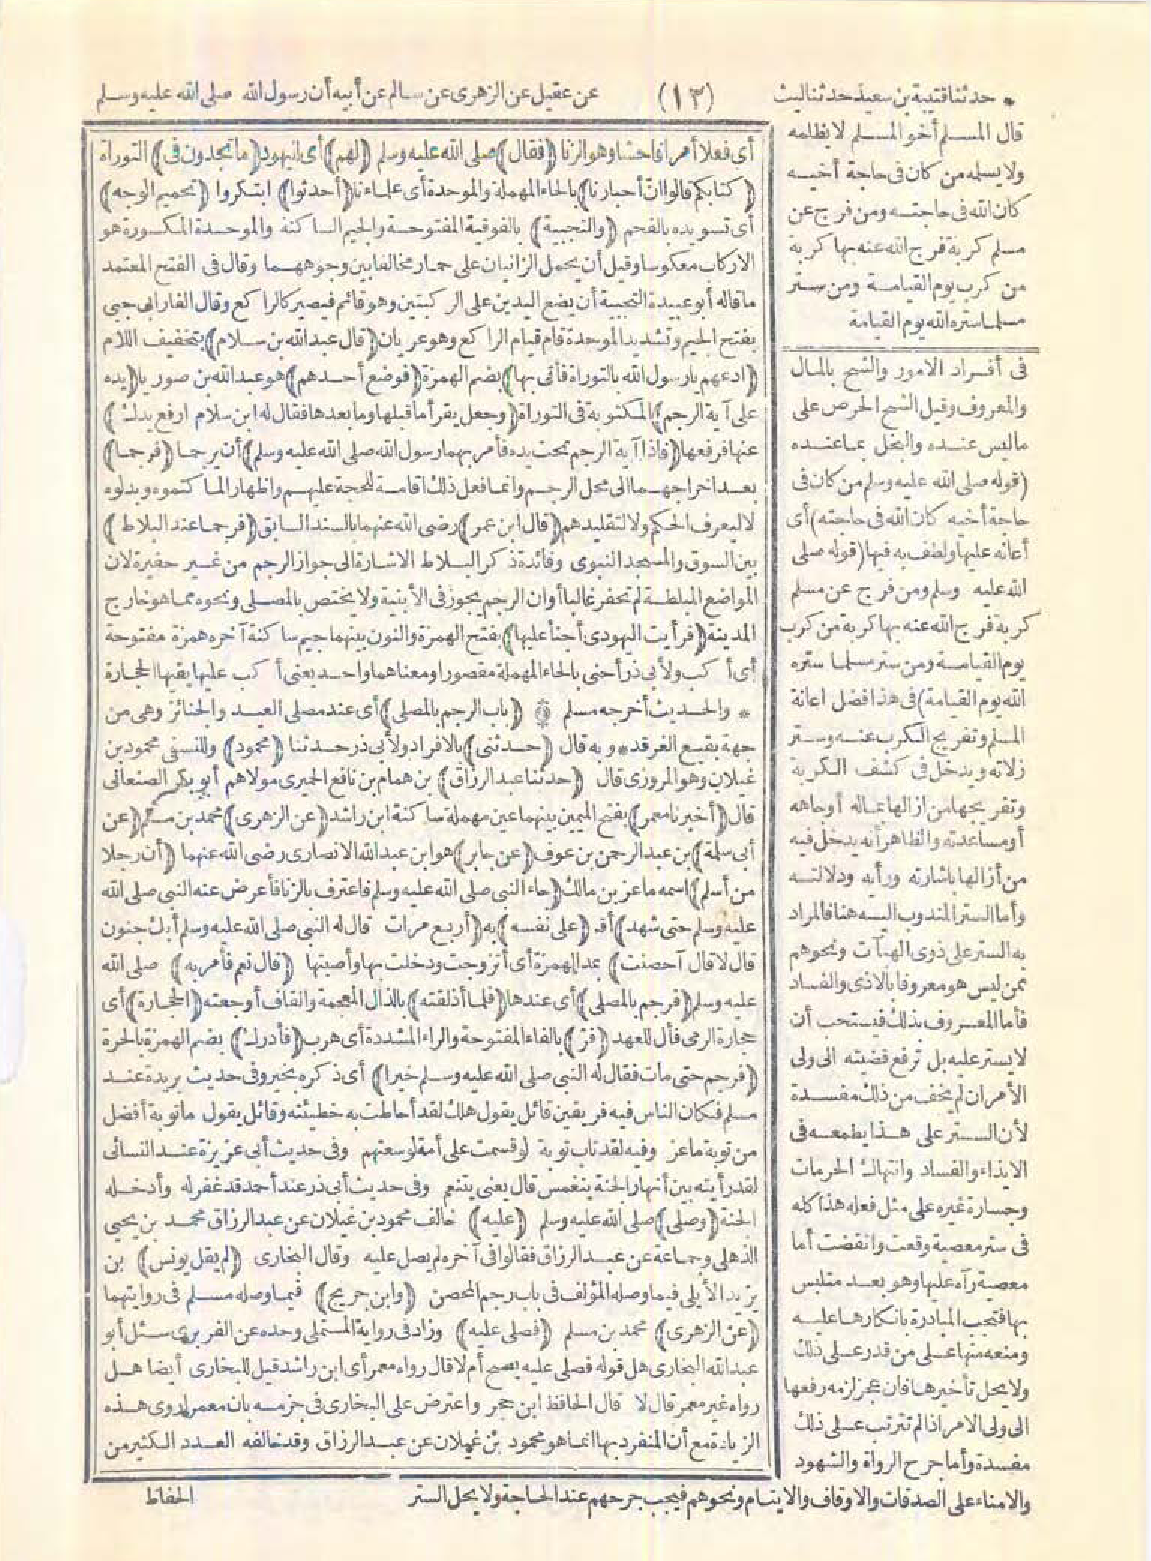 * حدثنا قتيبة بن سعيد حدثنا ليث (١٣) عن عقيل عن الزهرى عن سالم عن أبيه أن رسول الله صلى الله عليه وسلم
قال المسلم أخو المسلم لا يظلمه
ولا يسلمه من كان فى حاجة أخيه
كان الله فى حاجته ومن فرج عن
مسلم كربة فرج الله عنه بها كربة
من كرب يوم القيامة ومن ستر
مسلما ستره الله يوم القيامة
فى أفراد الامور والشح بالمال
والمعروف وقيل الشح الحرص على
ما ليس عنده والبخل بما عنده
(قوله صلى الله عليه وسلم من كان فى
حاجة أخيه كان الله فى حاجته) أى
أعانه عليها ولطف به فيها (قوله صلى
الله عليه وسلم ومن فرج عن مسلم
كربة فرج الله عنه بها كربة من كرب
يوم القيامة ومن ستر مسلما ستره
الله يوم القيامة) فى هذا فضل اعانة
المسلم وتفريج الكرب عنه وستر
زلاته ويدخل فى كشف الكربة
وتفريجها من ازالها بماله أو جاهه
أو مساعدته والظاهر أنه يدخل فيه
من أزالها باشارته ورأيه ودلالته
وأما الستر المندوب اليه هنا فالمراد
به الستر على ذوى الهيآت ونحوهم
ممن ليس هو معروفا بالاذى والفساد
فأما المعروف بذلك فيستحب أن
لا يستر عليه بل ترفع قضيته الى ولى
الأمر ان لم يخف من ذلك مفسدة
لأن الستر على هذا يطمعه فى
الايذاء والفساد وانتهاك الحرمات
وجسارة غيره على مثل فعله هذا كله
فى ستر معصية وقعت وانقضت أما
معصية رآه عليها وهو بعد متلبس
بها فتجب المبادرة بانكارها عليه
ومنعه منها على من قدر على ذلك
ولا يحل تأخيرها فان عجز لزمه رفعها
الى ولى الامر اذا لم تترتب على ذلك
مفسدة وأما جرح الرواة والشهود
والامناء على الصدقات والاوقاف والايتام ونحوهم فيجب جرحهم عند الحاجة ولا يحل الستر
أى فعلا أمرا فاحشا وهو الزنا (فقال) صلى الله عليه وسلم (لهم) أى لليهود (ما تجدون فى) التوراة
(كتابكم قالوا ان أحبارنا) بالحاء المهملة والموحدة أى علماءنا (أحدثوا) ابتكروا (تحميم الوجه)
أى تسويده بالفحم (والتجبية) بالفوقية المفتوحة والجيم الساكنة والموحدة المكسورة هو
الاركاب معكوسا وقيل أن يحمل الزانيان على حمار مخالفا بين وجوههما وقال فى الفتح المعتمد
ما قاله أبو عبيدة التجبية أن يضع اليدين على الركبتين وهو قائم فيصير كالراكع وقال الفارابى جبى
بفتح الجيم وتشديد الموحدة قام قيام الراكع وهو عريان (قال عبد الله بن سلام) بتخفيف اللام
(ادعهم يا رسول الله بالتوراة فأتى بها) بضم الهمزة (فوضع أحدهم) هو عبد الله بن صوريا (يده
على آية الرجم) المكتوبة فى التوراة (وجعل يقرأ ما قبلها وما بعدها فقال له ابن سلام ارفع يدك)
عنها فرفعها (فاذا آية الرجم تحت يده فأمر بهما رسول الله صلى الله عليه وسلم) أن يرجما (فرجما)
بعد اخراجهما الى محل الرجم وانما فعل ذلك اقامة للحجة عليهم واظهارا لما كتموه وبدلوه
لا ليعرف الحكم ولا لتقليدهم (قال ابن عمر) رضى الله عنهما بالسند السابق (فرجما عند البلاط)
بين السوق والمسجد النبوى وفائدة ذكر البلاط الاشارة الى جواز الرجم من غير حفيرة لان
المواضع المبلطة لم تحفر غالبا أو ان الرجم يجوز فى الأبنية ولا يختص بالمصلى ونحوه مما هو خارج
المدينة (فرأيت اليهودى أجنأ عليها) بفتح الهمزة والنون بينهما جيم ساكنة آخره همزة مفتوحة
أى أكب ولأبى ذر أحنى بالحاء المهملة مقصورا ومعناهما واحد يعنى أكب عليها يقيها الحجارة
* والحديث أخرجه مسلم ﴿ (باب الرجم بالمصلى) أى عند مصلى العيد والجنائز وهى من
جهة بقيع الغرقد * وبه قال (حدثنى) بالافراد ولأبى ذر حدثنا (محمود) وللنسفى محمود بن
غيلان وهو المروزى قال (حدثنا عبد الرزاق) بن همام بن نافع الحميرى مولاهم أبو بكر الصنعانى
قال (أخبرنا معمر) بفتح الميمين بينهما عين مهملة ساكنة ابن راشد (عن الزهرى) محمد بن مسلم (عن
أبى سلمة) بن عبد الرحمن بن عوف (عن جابر) هو ابن عبد الله الانصارى رضى الله عنهما (أن رجلا
من أسلم) اسمه ماعز بن مالك (جاء النبى صلى الله عليه وسلم فاعترف بالزنا فأعرض عنه النبى صلى الله
عليه وسلم حتى شهد) أقر (على نفسه) به (أربع مرات قال له النبى صلى الله عليه وسلم أبك جنون
قال لا قال آحصنت) بمد الهمزة أى أتزوجت ودخلت بها وأصبتها (قال نعم فأمر به) صلى الله
عليه وسلم (فرجم بالمصلى) أى عندها (فلما أذلقته) بالذال المعجمة والقاف أوجعته (الحجارة) أى
حجارة الرمى فأل للعهد (فر) بالفاء المفتوحة والراء المشددة أى هرب (فأدرك) بضم الهمزة بالحرة
(فرجم حتى مات فقال له النبى صلى الله عليه وسلم خيرا) أى ذكره بخير وفى حديث بريدة عند
مسلم فكان الناس فيه فريقين قائل يقول هلك لقد أحاطت به خطيئته وقائل يقول ما توبة أفضل
من توبة ماعز وفيه لقد تاب توبة لو قسمت على أمة لوسعتهم وفى حديث أبى هريرة عند النسائى
لقد رأيته بين أنهار الجنة ينغمس قال يعنى يتنعم وفى حديث أبى ذر عند أحمد قد غفر له وأدخله
الجنة (وصلى) صلى الله عليه وسلم (عليه) خالف محمود بن غيلان عن عبد الرزاق محمد بن يحيى
الذهلى وجماعة عن عبد الرزاق فقالوا فى آخره لم يصل عليه وقال البخارى (لم يقل يونس) بن
يزيد الأيلى فيما وصله المؤلف فى باب رجم المحصن (وابن جريج) فيما وصله مسلم فى روايتهما
(عن الزهرى) محمد بن مسلم (فصلى عليه) وزاد فى رواية المستملى وحده عن الفربرى سئل أبو
عبد الله البخارى هل قوله فصلى عليه يصح أم لا قال رواه معمر أى ابن راشد قيل للبخارى أيضا هل
رواه غير معمر قال لا قال الحافظ ابن حجر واعترض على البخارى فى جزمه بان معمرا روى هذه
الزيادة مع أن المنفرد بها انما هو محمود بن غيلان عن عبد الرزاق وقد خالفه العدد الكثير من
الحفاظ